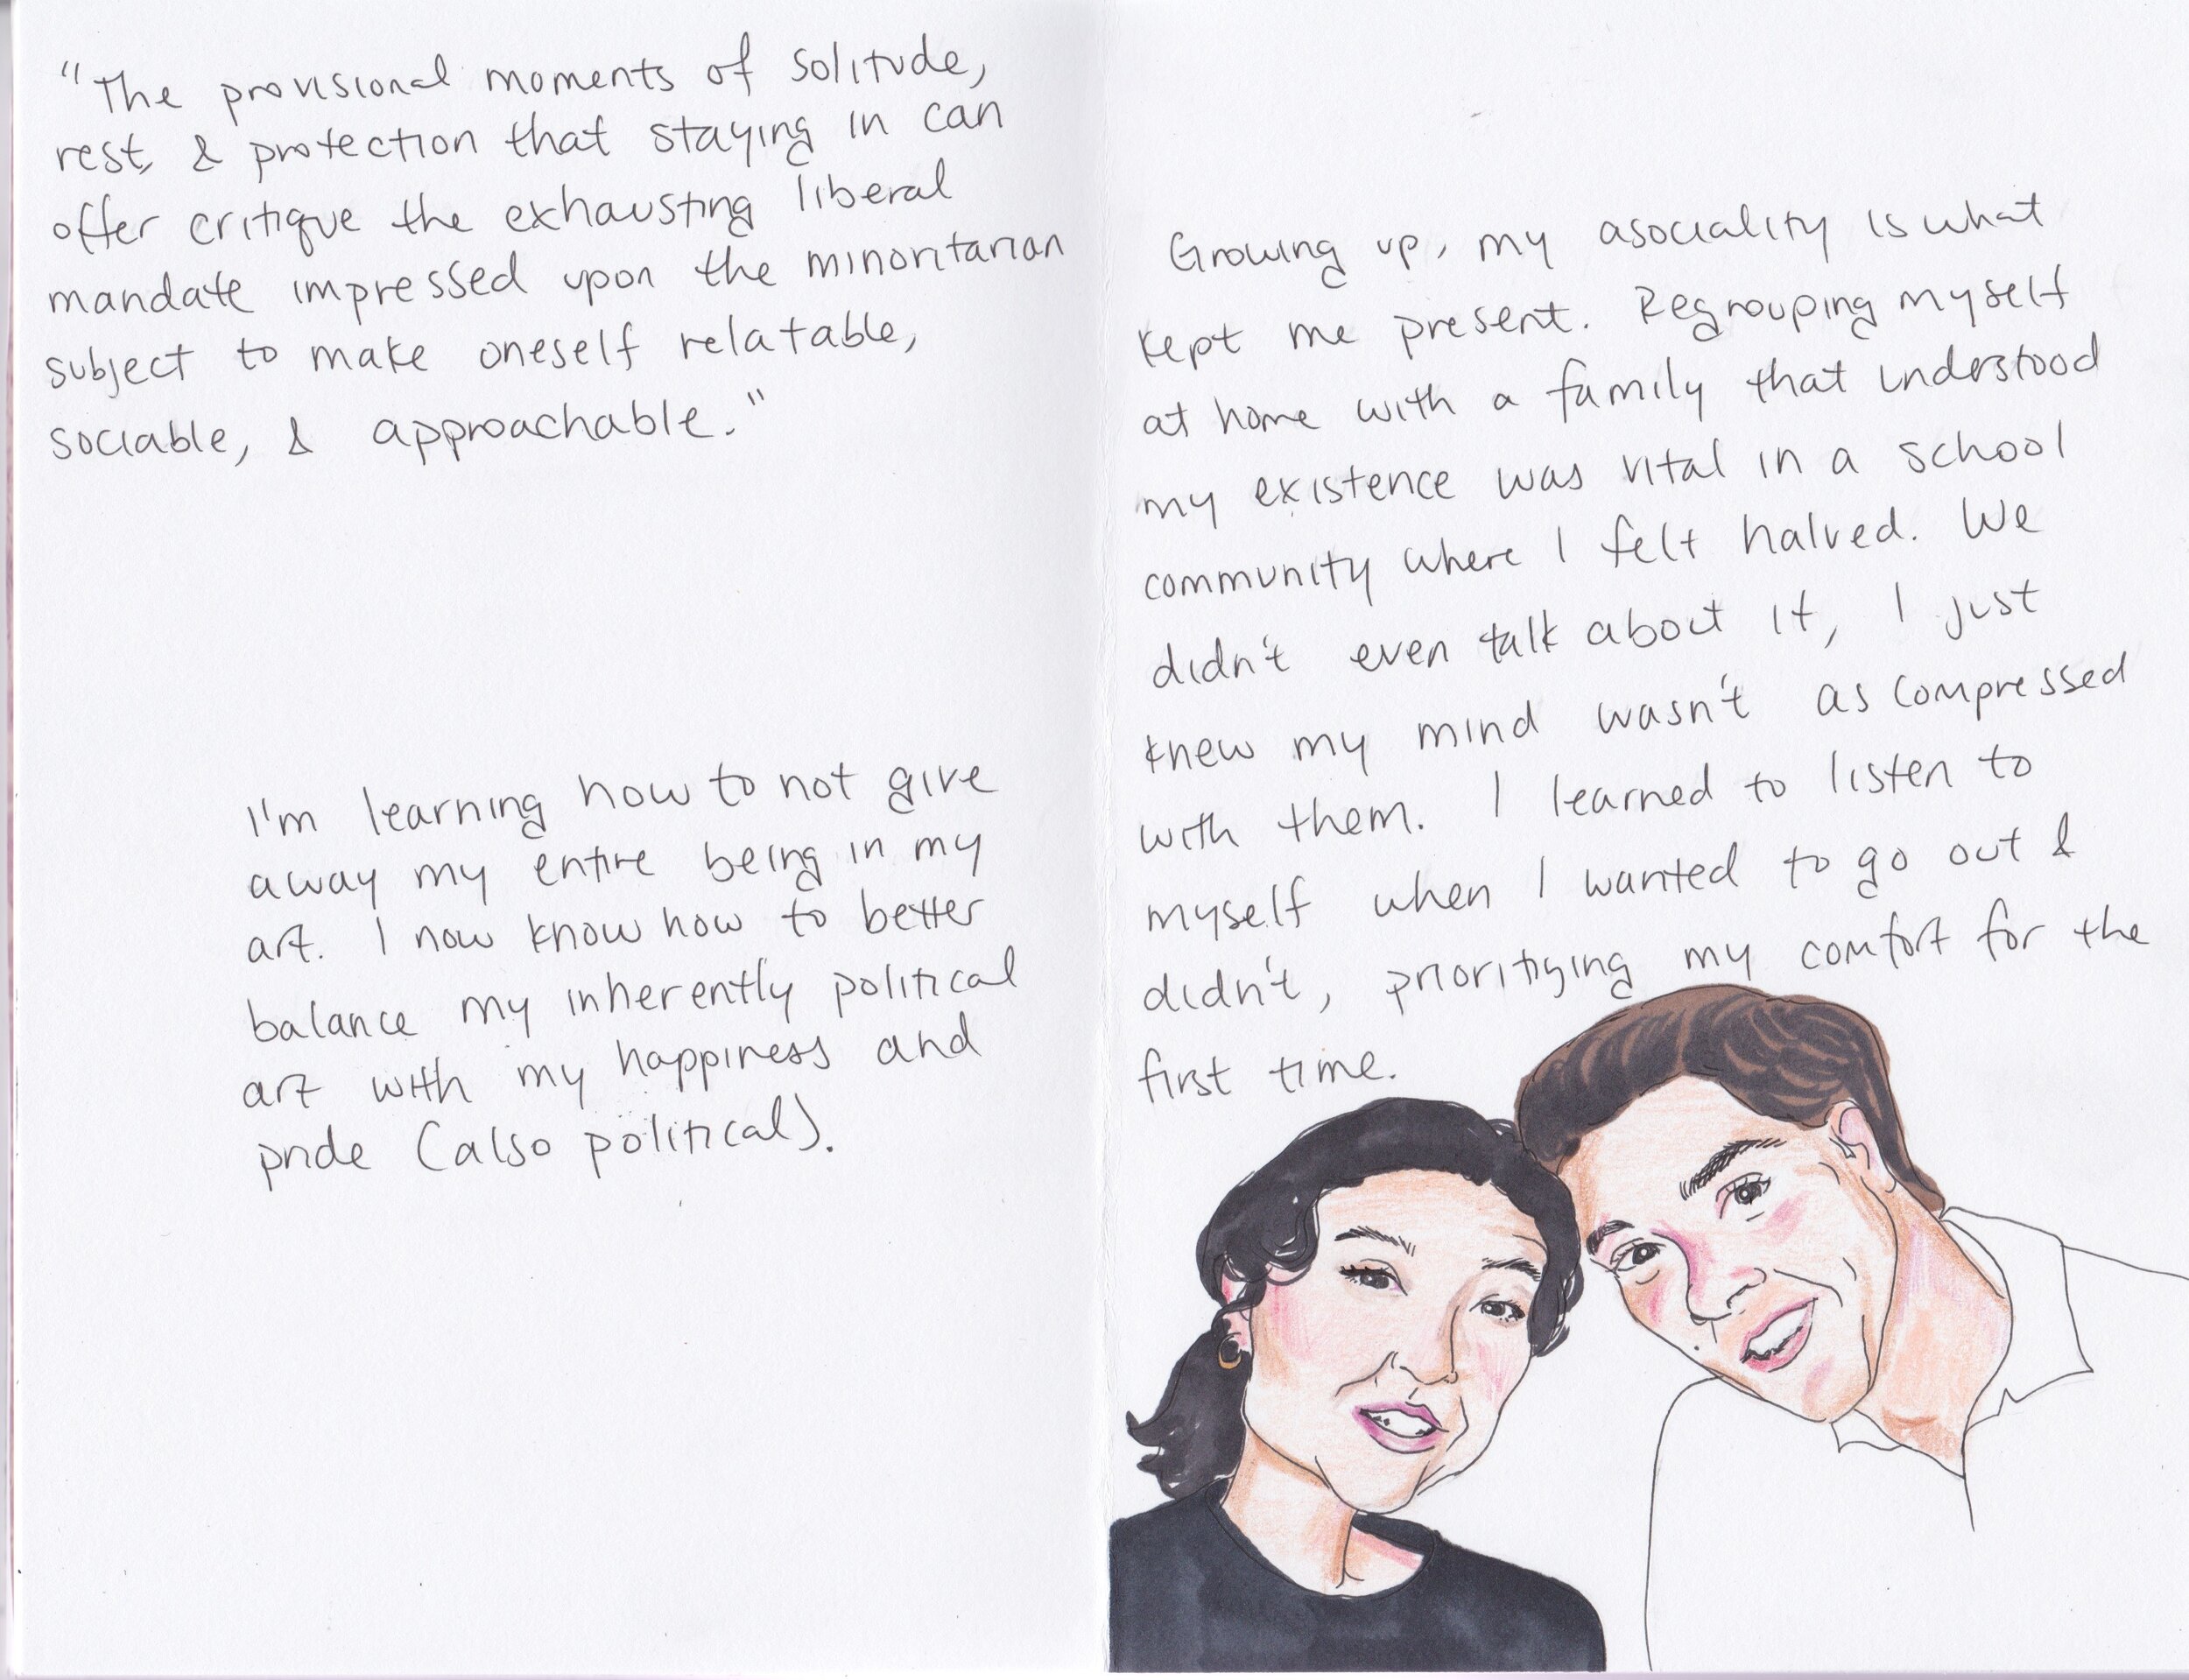 "The provisional moments of solitude,
rest, & protection that staying in can
offer critique the exhausting liberal
mandate impressed upon the minoritarian
subject to make oneself relatable,
sociable, & approachable."
I'm learning how to not give
away my entire being in my
art. I now know how to better
balance my inherently political
art with my happiness and
pride (also political).
Growing up, my asociality is what
kept me present. Regrouping myself
at home with a family that understood
my existence was vital in a school
community where I felt halved. We
didn't even talk about it, I just
knew my mind wasn't as compressed
with them. I learned to listen to
myself when I wanted to go out &
didn't, prioritizing my comfort for the
first time.